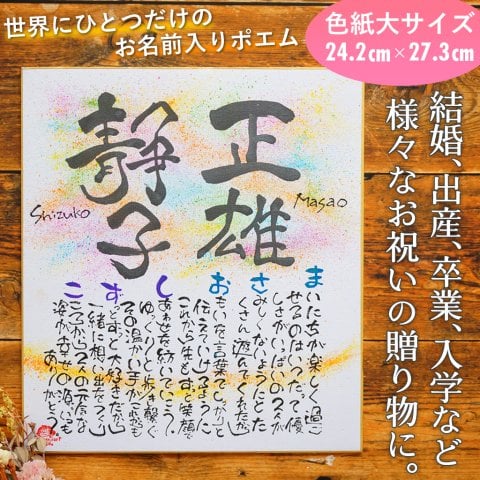 世界にひとつだけの
お名前入りポエム
色紙大サイズ
24.2cm×27.3cm
結婚、出産、卒業、入学など
様々なお祝いの贈り物に。
正雄
Masao
静子
Shizuko
まいにちが楽しく過ご
せるのはいつだって優
しさがいっぱいの2人が
さみしくないようにとた
くさん遊んでくれたから
おもいを言葉でしっかりと
伝えていけるように
これから先もずっと笑顔で
しあわせを紡いでいこう
ゆっくりと歩き繋ぐ
その温かい手がこれからも
ずっとずっと大好きだから
一緒に想い出をつくり
こころから2人の元気な
姿が幸せの源いつも
ありがとう